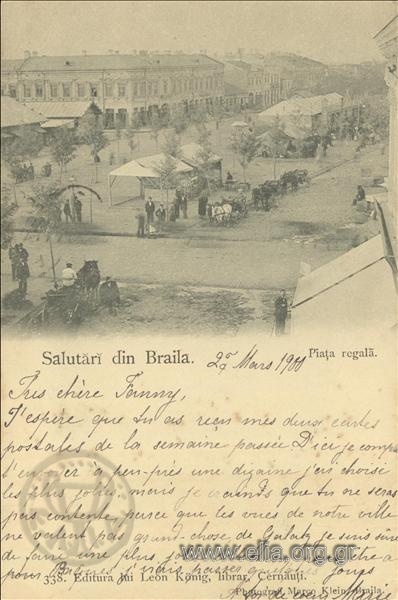 Salutări din Braila. 2 Mars 1900 Piața regală.
Très chère Fanny,
J'espère que tu as reçu mes deux cartes
postales de la semaine passée. D'ici je compte
t'envoyer à peu-près une dizaine j'ai choisi
les plus jolies, mais je crains que tu ne seras
pas contente, parce que les vues de notre ville
ne valent pas grand-chose de Galatz je suis sûre
de faire une plus
pour quelques jours
www.elia.org.gr
338. Editura lui Leon König, librar, Cernăuți.
Photograf. Marco Klein, Braila.
Marie